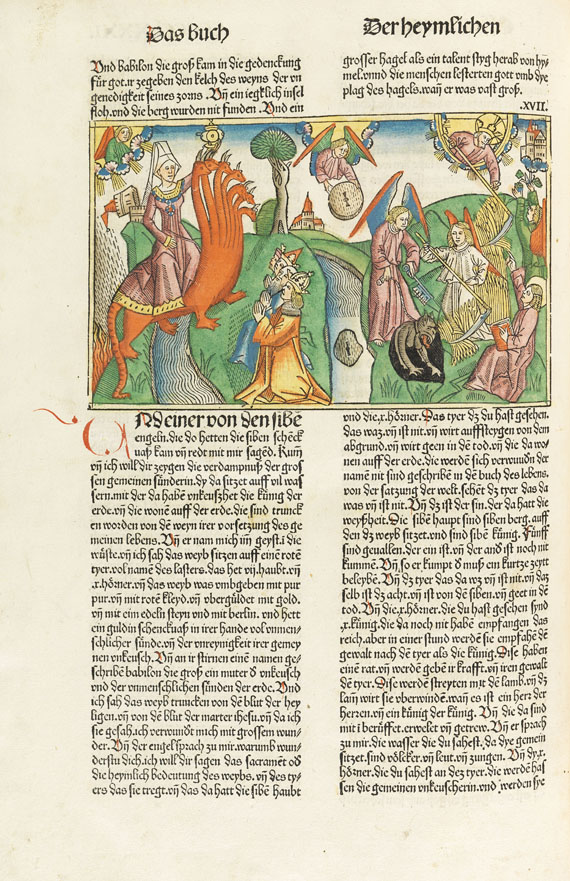 Das buch
Der heymlichen
Vnd babilon die groß kam in die gedenckung
für got.ir zegeben den kelch des weyns der vn
genedigkeit seines zorns .Vñ ein iegklich insel
floh.vnd die berg wurden nit funden .Vnd ein
grosser hagel als ein talent styg herab von hy⸗
mel.vnnd die menschen lesterten gott vmb dye
plag des hagels.wañ er was vast groß.
.XVII.
Nd einer von den sibē
engeln.die do hetten die siben schēck
uaß kam vñ redt mit mir sagēd. Kum̄
vñ ich will dir zeygen die verdampnuß der gros
sen gemeinen sünderin.dy da sitzet auff vil was
sern.mit der da habē vnkeüßhet die künig der
erde.vñ die wonē auff der erde.die sind trunck
en worden von dē weyn irer vorsetzung des ge
meinen lebens.Vñ er nam mich im̄ geyst.i die
wüste.vñ ich sah das weyb sitzen auff einē rotē
tyer.vol namē des lasters.das het vij.haubt.vñ
.x.hörner.vñ das weyb was vmbgeben mit pur
pur.vñ mit rotē kleyd.vñ vbergüldet mit gold.
vñ mit eim edeln steyn vnd mit berlin. vnd hett
ein guldin schenckuaß in irer hande vol vnmen⸗
schlicher sünde.vñ der vnreynigkeit irer gemey
nen vnkeusch.Vñ an ir stirnen einē namen ge⸗
schribē babilon die groß ein muter ď vnkeusch
vnd der vnmenschlichen sünden der erde.Vnd
ich sah das weyb truncken von dē blut der hey
ligen.vñ von dē blut der marter ihesu.vñ da ich
sie gesah.ich verwundt mich mit grossem wun⸗
der.Vñ der engel sprach zu mir.warumb wun⸗
derstu dich.ich will dir sagen das sacramēt oď
die heymlich bedeutung des weybs. vñ des ty⸗
ers das sie tregt.vñ das da hatt die sibē haubt
vnd die.x.hörner.Das tyer dz du hast gesehen.
das waz.vñ ist nit.vñ wirt auffsteygen von dem
abgrund.vñ wirt geen in den tod.vñ die da wo⸗
nen auff der erde.die werdē sich verwundn der
namē nit sind geschribē in dē buch des lebens.
von der satzung der welt.sehēt dz tyer das da
was vñ ist nit.Vñ dz ist der sin.der da hatt die
weyßheit. Die sibē haupt sind siben berg.auff
den dz weyb sitzet.vnd sind sibē künig. Fünff
sind geuallen.der ein ist.vñ der and ist noch nit
kummen.Vñ.so er kumpt ď muß ein kurtze zeytt
beleybē.Vñ dz tyer das da wz vñ ist nit.vñ daz
selb ist dz acht.vñ ist von dē siben.vñ geet in dē
tod.Vñ die.x.hörner.die du hast gesehen synd
.x.künig.die da noch nit habē empfangen das
reich.aber in einer stund werdē sie empfahē dē
gewalt nach dē tyer als die künig.Dise haben
einē rat.vñ werdē gebē ir krafft.vñ iren gewalt
dē tyer. Dise werdē streyten mit dē lamb.vñ dz
lam̄ wirt sie vberwindē.wañ es ist ein herz der
herzen.vñ ein künig der künig. Vñ die da sind
mit i berüffet.erwelet vñ getrew. Vñ er sprach
zu mir.die wasser die du sahest.da dye gemein
sitzet.sind völcker.vñ leut.vñ zungen. Vñ dy.x.
hörner.die du sahest an dez tyer.die werdē has
sen die gemeinen vnkeuscherin.vnd werden sye